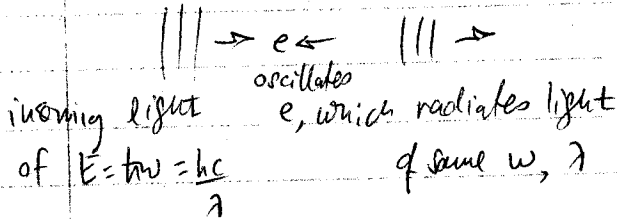 ||| → e ← ||| →
oscillates
incoming light e, which radiates light
of E = ħω = hc/λ of same ω, λ